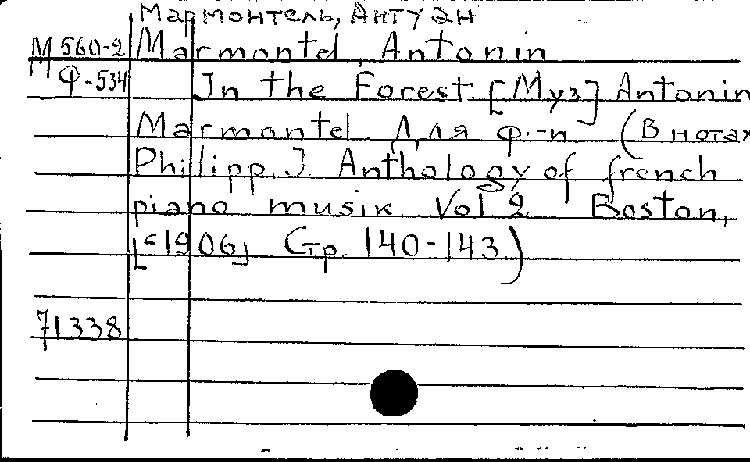 Мармонтель, Антуан
М 560-2 Marmontel, Antonin
Ф-534 In the Forest [Муз] Antonin
Marmontel Для ф.-п. (В нотах
Philipp, J. Anthology of french
piano musik Vol 2. Boston,
[c1906] Стр. 140-143.)
71338